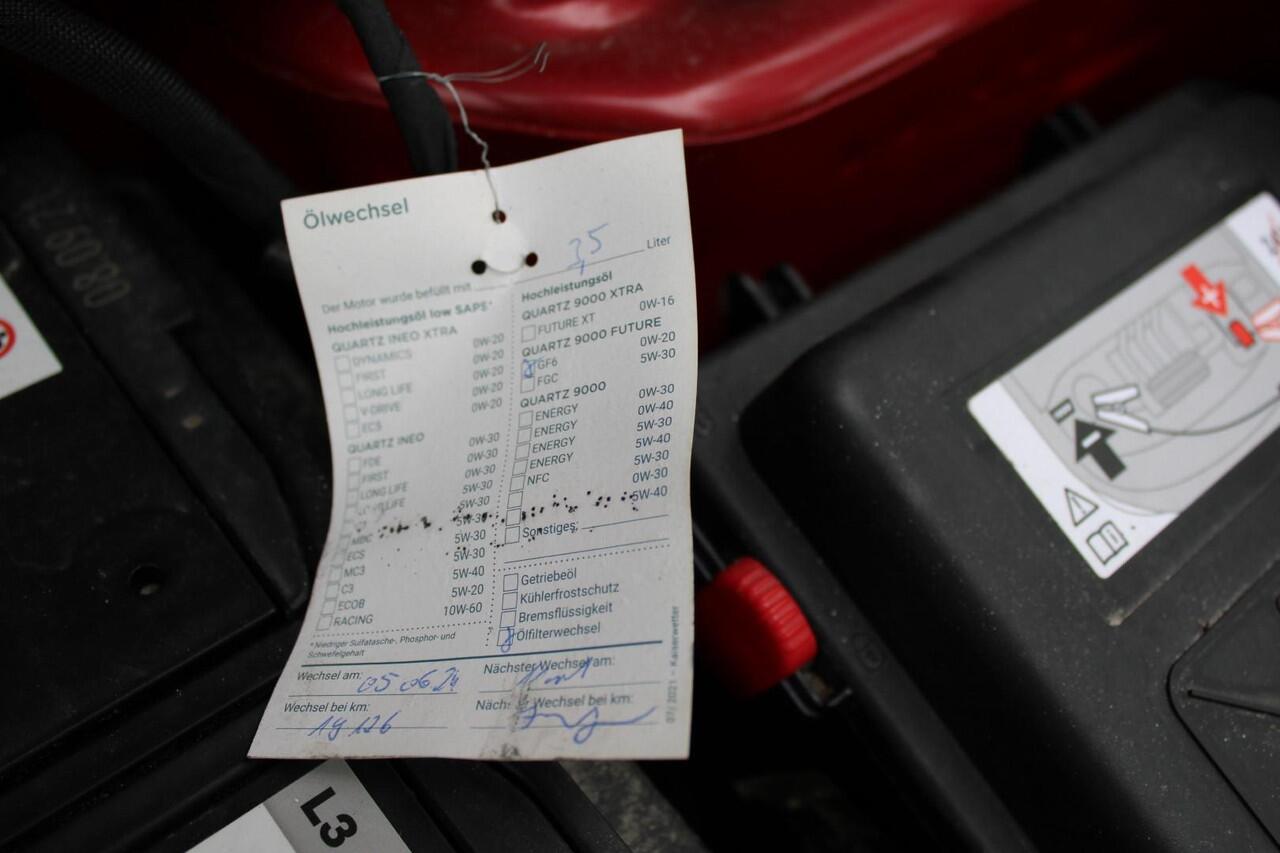 Ölwechsel
Der Motor wurde befüllt mit 3,5 Liter
Hochleistungsöl low SAPS*
QUARTZ INEO XTRA
DYNAMICS 0W-20
FIRST 0W-20
LONG LIFE 0W-20
V-DRIVE 0W-20
ECS 0W-20
QUARTZ INEO
FDE 0W-30
FIRST 0W-30
LONG LIFE 0W-30
LIFE 5W-30
5W-30
MDC 5W-30
ECS 5W-30
MC3 5W-30
C3 5W-40
ECOB 5W-20
RACING 10W-60
* Niedriger Sulfatasche-, Phosphor- und
Schwefelgehalt
Hochleistungsöl
QUARTZ 9000 XTRA
FUTURE XT 0W-16
QUARTZ 9000 FUTURE
GF6 0W-20
FGC 5W-30
QUARTZ 9000
ENERGY 0W-30
ENERGY 0W-40
ENERGY 5W-30
ENERGY 5W-40
NFC 5W-30
0W-30
5W-40
Sonstiges:
Getriebeöl
Kühlerfrostschutz
Bremsflüssigkeit
Ölfilterwechsel
Wechsel am: 05 06 24
Nächster Wechsel am:
Wechsel bei km: 19 126
Näch Wechsel bei km:
07/2021 – Kaiserwetter
08.09.21
L3